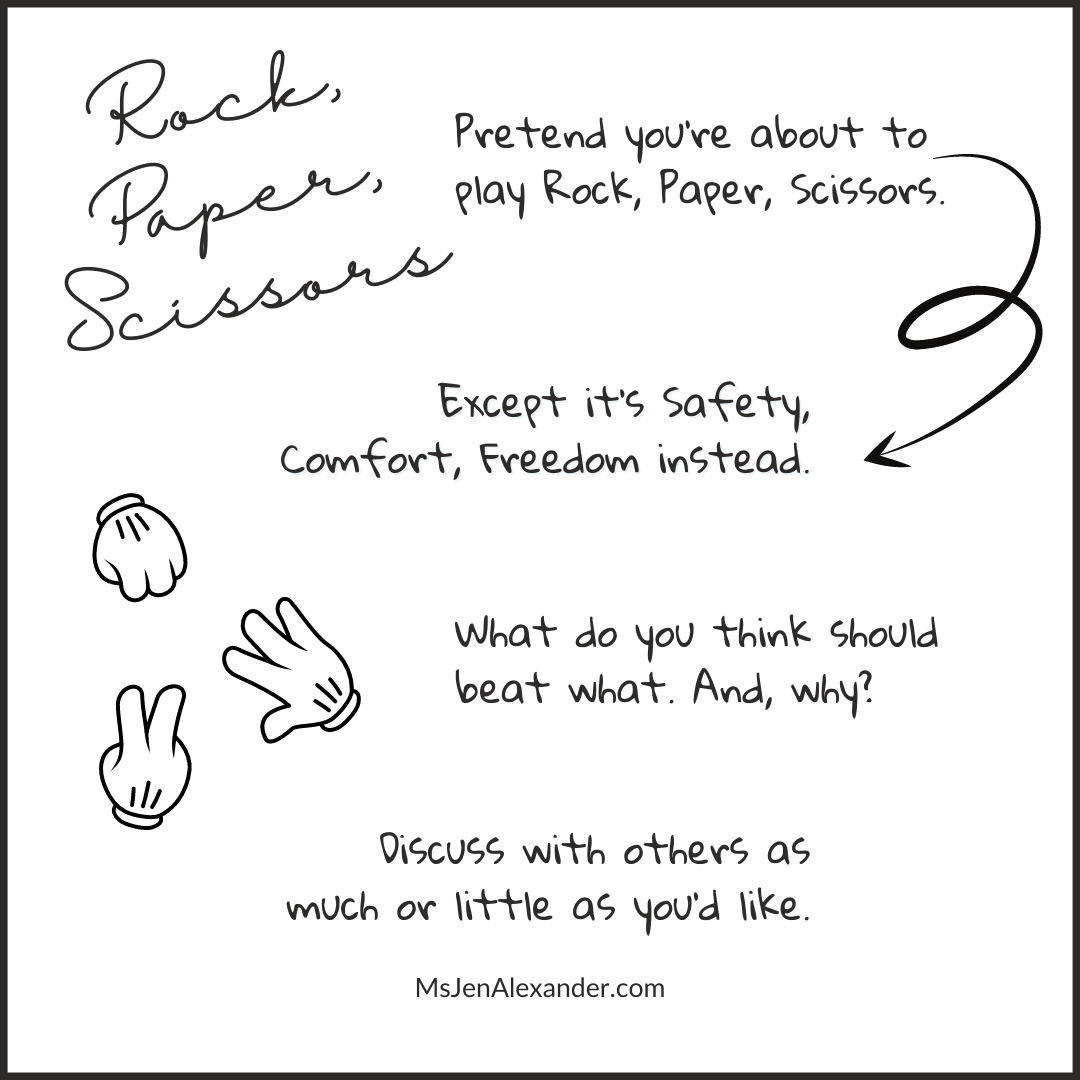 Rock,
Paper,
Scissors
Pretend you're about to
play Rock, Paper, Scissors.
Except it's Safety,
Comfort, Freedom instead.
What do you think should
beat what. And, why?
Discuss with others as
much or little as you'd like.
MsJenAlexander.com